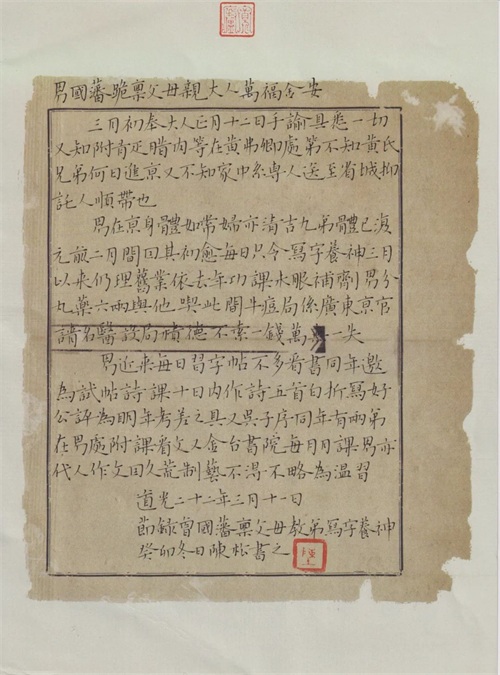 男國藩跪禀父母親大人萬福金安
三月初奉大人正月十二日手諭具悉一切
又知附有疋腊肉等在黄弗卿處第不知黄氏
兄弟何日進京又不知家中係專人送至省城抑
託人順帶也
男在京身體如常婦亦清吉九弟體已復
元前二月間因其初愈每日只令寫字養神三月
以来仍理舊業依去年功課未服補劑男分
丸藥六兩與他喫此間牛痘局係廣東京官
請名醫設局積德不索一錢萬一失
男近来每日習字帖不多看書同年邀
為試帖詩課十日内作詩五首白折寫好
公評為明年考差之具又吳子序同年有兩弟
在男處附課看文又金台書院每月月課男亦
代人作文因久荒制藝不得不略為温習
道光二十二年三月十一日
節錄曾國藩禀父母教弟寫字養神
癸卯冬日陳松書之